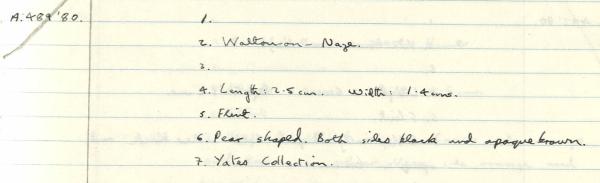 A.489'80. 1.
2. Walton-on-Naze.
3.
4. Length: 2.5 cm. Width: 1.4 cms.
5. Flint.
6. Pear shaped. Both sides black and opaque brown.
7. Yates Collection.